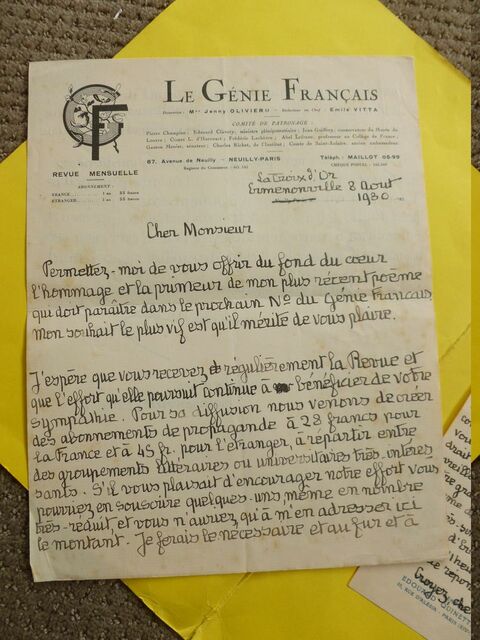 GF
LE GÉNIE FRANÇAIS
Direction : Mme Jenny OLIVIERU — Rédacteur en Chef : Emile VITTA
COMITÉ DE PATRONAGE :
Pierre Champion ; Edouard Clavery, ministre plénipotentiaire ; Jean Guiffrey, conservateur du Musée du
Louvre ; Comte L. d'Harcourt ; Frédéric Lachèvre ; Abel Lefranc, professeur au Collège de France ;
Gaston Menier, sénateur ; Charles Richet, de l'Institut ; Comte de Saint-Aulaire, ancien ambassadeur
67, Avenue de Neuilly - NEUILLY-PARIS Téléph : MAILLOT 05-99
Registre du Commerce CHÈQUE POSTAL
REVUE MENSUELLE
ABONNEMENT
FRANCE 1 an 35 francs
ETRANGER 1 an francs
La Croix d'Or
Ermenonville 8 Aout
1930
Cher Monsieur
Permettez-moi de vous offrir du fond du cœur
l'hommage et la primeur de mon plus récent poème
qui doit paraître dans le prochain No du Génie Français
Mon souhait le plus vif est qu'il mérite de vous plaire.
J'espère que vous recevez régulièrement la Revue et
que l'effort qu'elle poursuit continue à bénéficier de votre
sympathie. Pour sa diffusion nous venons de créer
des abonnements de propagande à 28 francs pour
la France et à 45 fr. pour l'étranger, à répartir entre
des groupements littéraires ou universitaires très intéres
sants. S'il vous plaisait d'encourager notre effort vous
pourriez en souscrire quelques-uns, même en nombre
très-réduit, et vous n'auriez qu'à m'en adresser ici
le montant. Je ferais le nécessaire et au fur et à
Croyez, che
EDOUARD QUINET
RUE D'ALESIA - PARIS